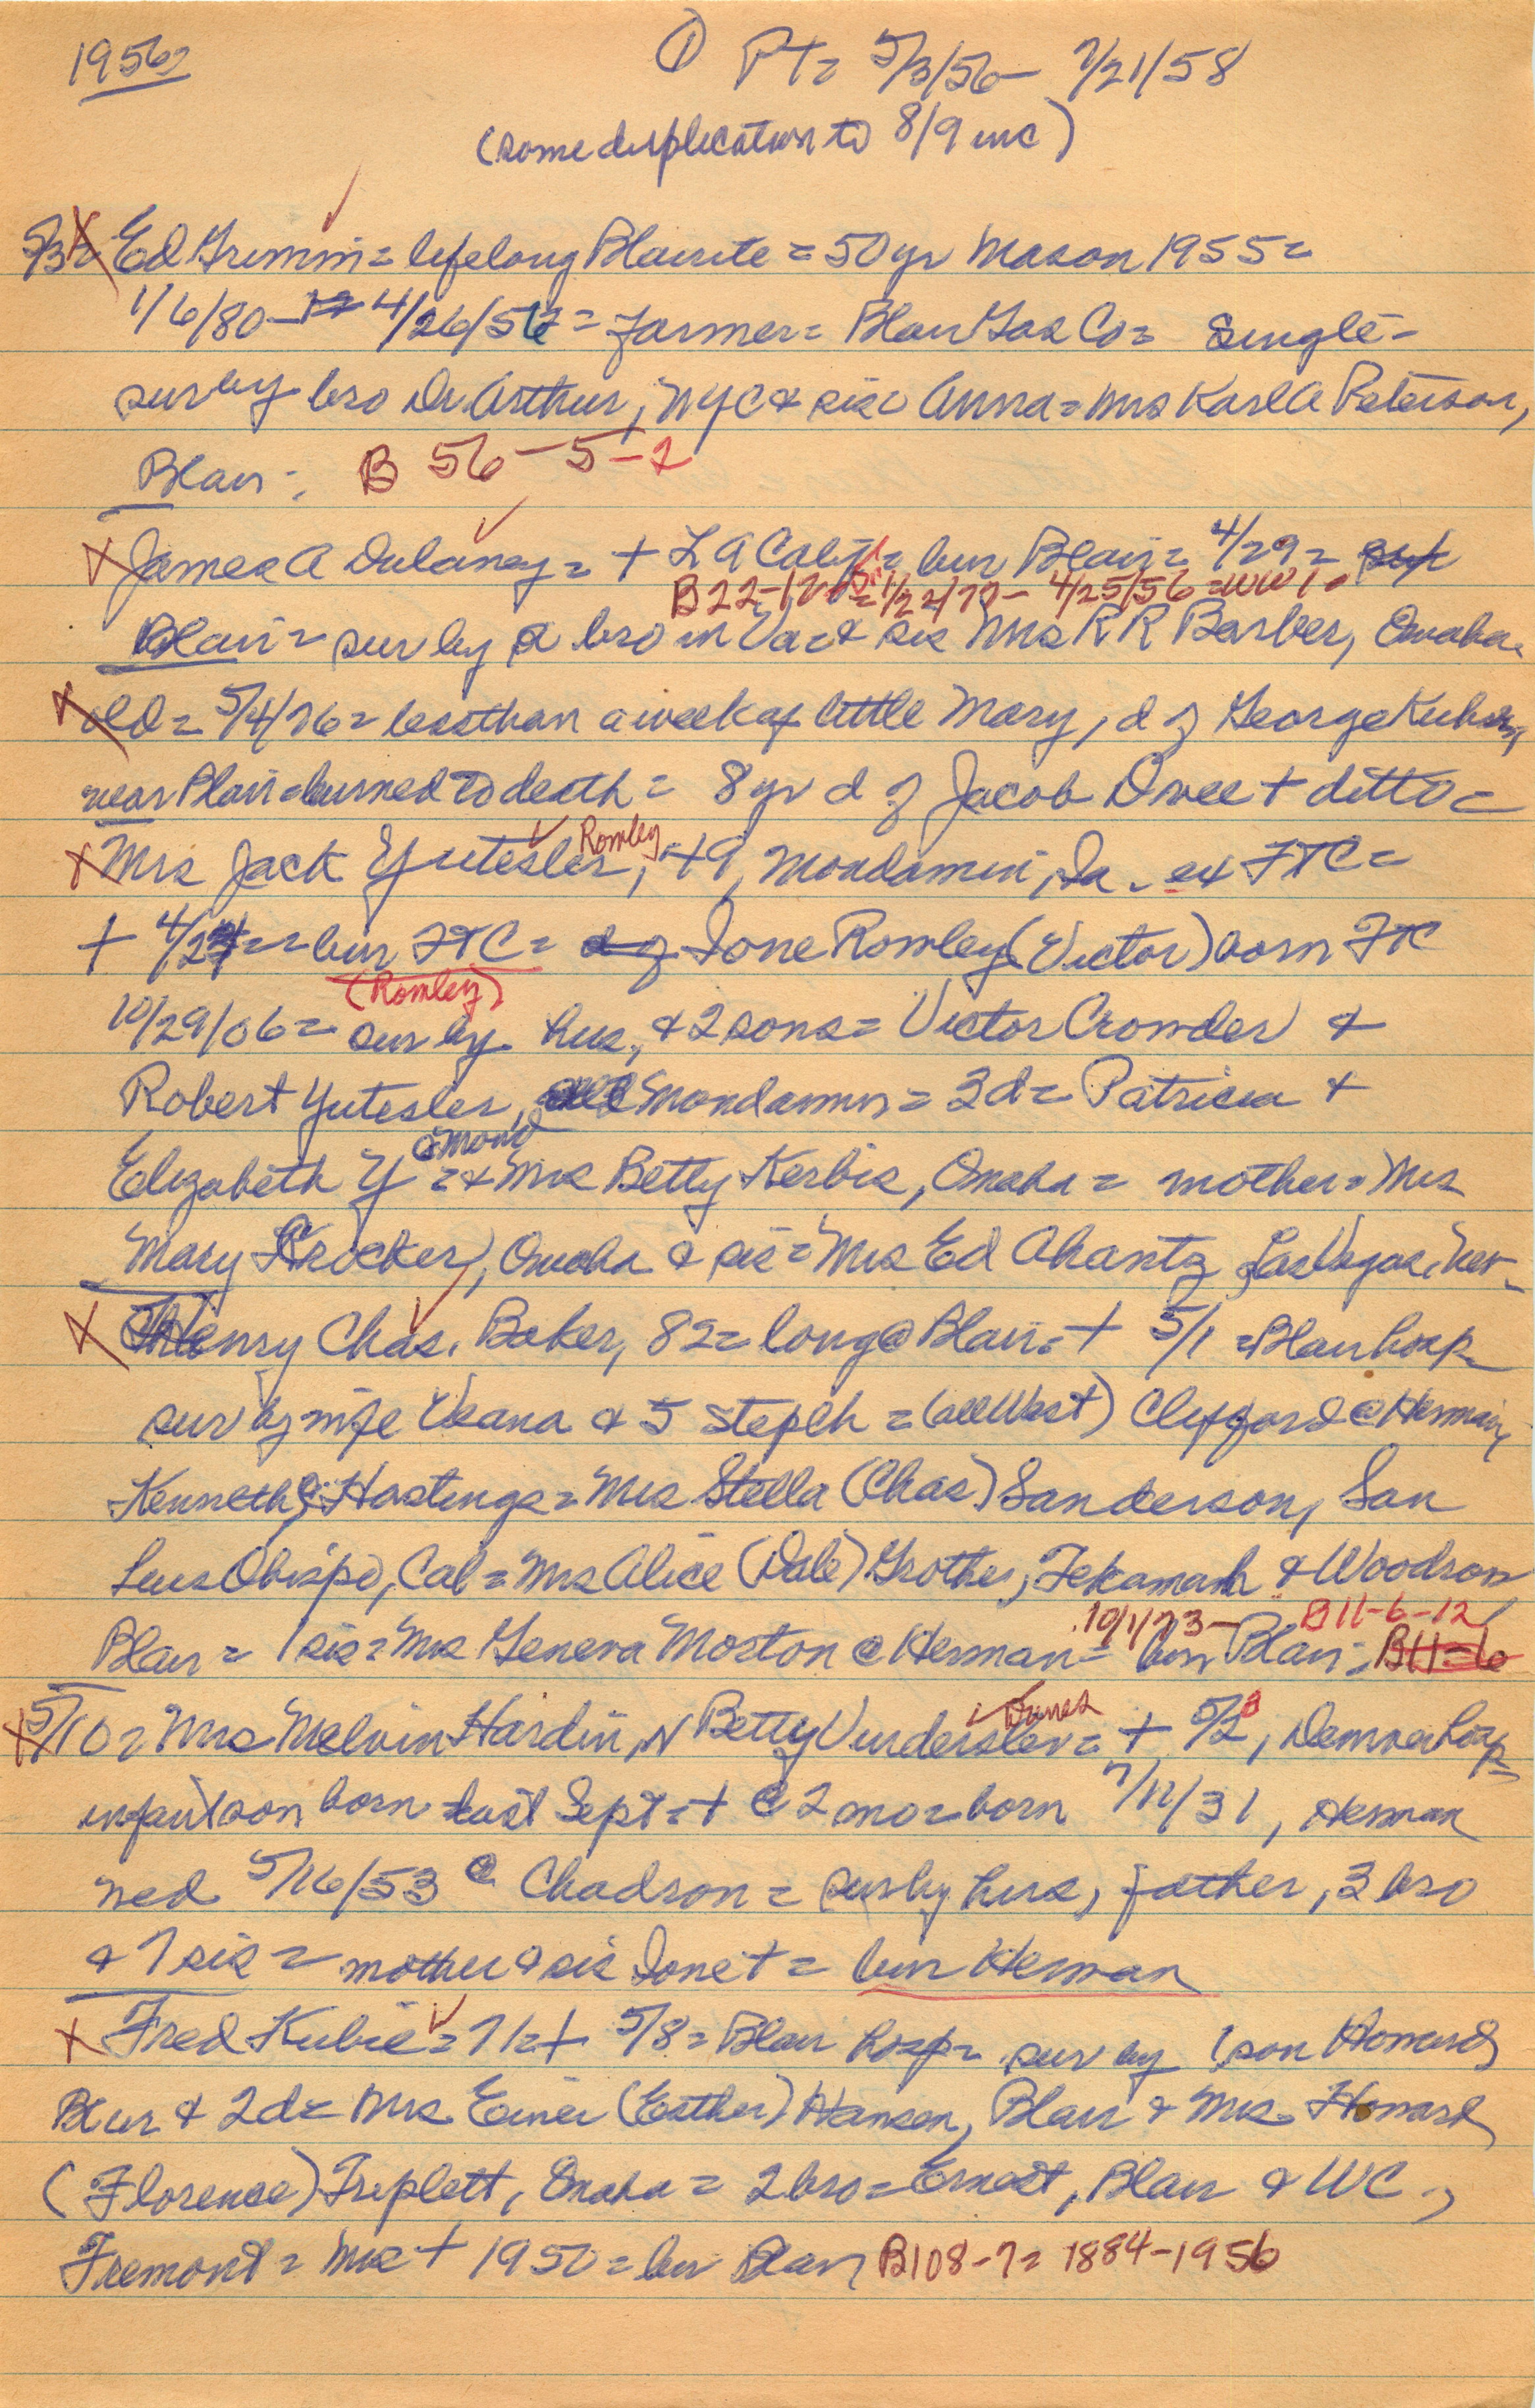 1956
① PT = 5/3/56 - 7/21/58
(some duplication to 8/9 inc)
5/3 = Ed Grimm = lifelong Blairite = 50 yr Mason 1955 =
1/6/80 - 4/26/56 = farmer = Blair Gas Co = Single -
sur by bro Dr. Arthur, NYC & sis Anna = Mrs Karl A Peterson,
Blair: B 56-5-2
James A Dulaney = + L A Calif = bur Blair = 4/29 =
B22-12 = 1/22/70 - 4/25/56 = WW 1 =
Blair = sur by a bro in Va & sis Mrs R R Barber, Omaha
old = 5/4/76 = less than a week of little Mary, d of George
near Blair burned to death = 8 yr d of Jacob + ditto =
Romley
Mrs Jack Yutesler, 49, Mondamin, Ia. ex FTC =
+ 4/24 = bur FTC = d of Ione Romley (Victor) born FTC
(Romley)
10/29/06 = sur by hus, & 2 sons = Victor Crowder &
Robert Yutesler, all Mondamin = 3 d = Patricia &
@ Mond
Elizabeth Y = & Mrs Betty Kerbis, Omaha = mother = Mrs
Mary Krocker, Omaha & sis = Mrs Ed Chantz, Las Vegas, Nev -
Henry Chas. Baker, 82 = long @ Blair = + 5/1 = Blair hosp -
sur by wife & 5 stepch = (all West) Clifford @ Herman,
Kenneth @ Hastings = Mrs Stella (Chas) Sanderson, San
Luis Obispo, Cal = Mrs Alice (Dale) Grothe, Tekamah & Woodrow
10/1/73 - B11-6-12
Blair = 1 sis = Mrs Geneva Morton @ Herman = bur Blair: B11-6
5/10 = Mrs Melvin Hardin, N Betty Vinderslev = + 5/2, Denver hosp
infant son born last Sept = + @ 2 mo = born 7/12/31, Herman
wed 5/16/53 @ Chadron = sur by hus, father, 3 bro
& 7 sis = mother & sis Ione + = bur Herman
Fred Kubie = 71 = + 5/8 = Blair hosp = sur by 1 son Howard,
Blair & 2 d = Mrs Einer (Esther) Hansen, Blair & Mrs Howard
(Florence) Triplett, Omaha = 2 bro = Ernest, Blair & WC.,
Fremont = Mrs + 1950 = bur Blair B108-7 = 1884-1956